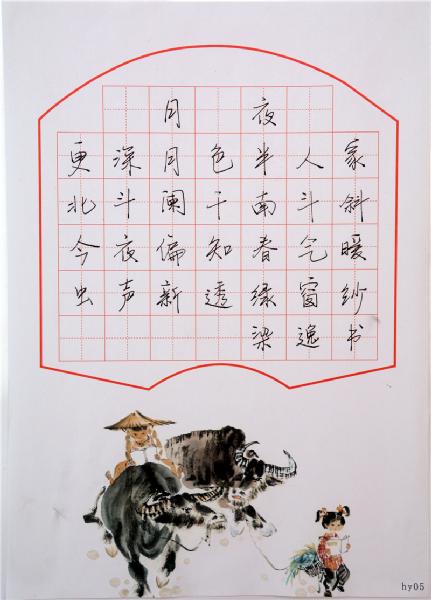 月夜
更深月色半人家
北斗阑干南斗斜
今夜偏知春气暖
虫声新透绿窗纱
梁逸书
hy05